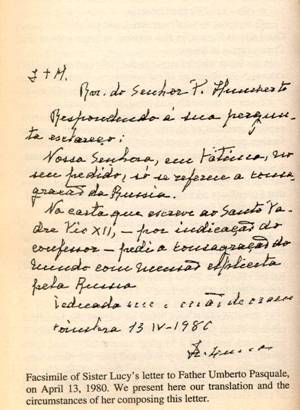 J + M.
Rev. do Senhor P. Humberto
Respondendo á sua pergun-
ta esclareço:
Nossa Senhora, em Fátima, no
seu pedido, só se referia a consa-
gração da Russia.
Na carta que escrevi ao Santo Pa-
dre Pio XII, – por indicação do
confessor – pedi a consagração do
mundo com menção explicita
pela Russia
Dedicada
Coimbra 13 IV – 1980
Facsimile of Sister Lucy's letter to Father Umberto Pasquale,
on April 13, 1980. We present here our translation and the
circumstances of her composing this letter.